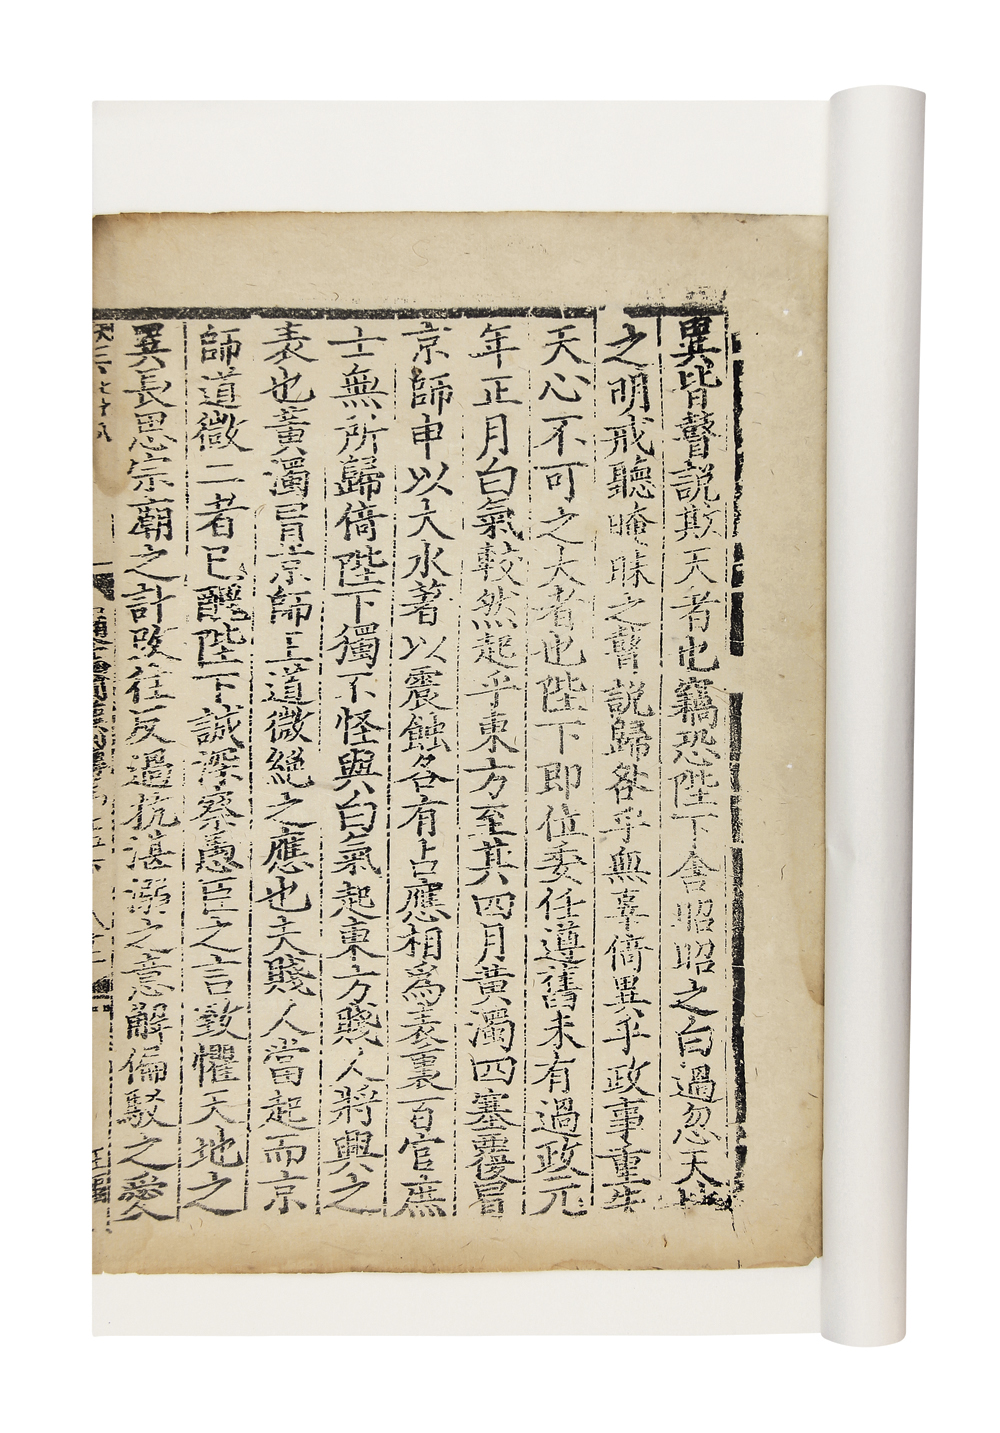 異皆瞽說欺天者也竊恐陛下舍昭昭之白過忽天地
之明戒聽晻昧之瞽說歸咎乎無辜倚異乎政事重失
天心不可之大者也陛下即位委任遵舊未有過政元
年正月白氣較然起乎東方至其四月黃濁四塞覆冒
京師申以大水著以震蝕各有占應相爲表裏百官庶
士無所歸倚陛下獨不怪與白氣起東方賤人將興之
表也黃濁冒京師王道微絕之應也夫賤人當起而京
師道微二者已醜陛下誠深察愚臣之言致懼天地之
異長思宗廟之計改往反過抗湛溺之意解偏駁之愛